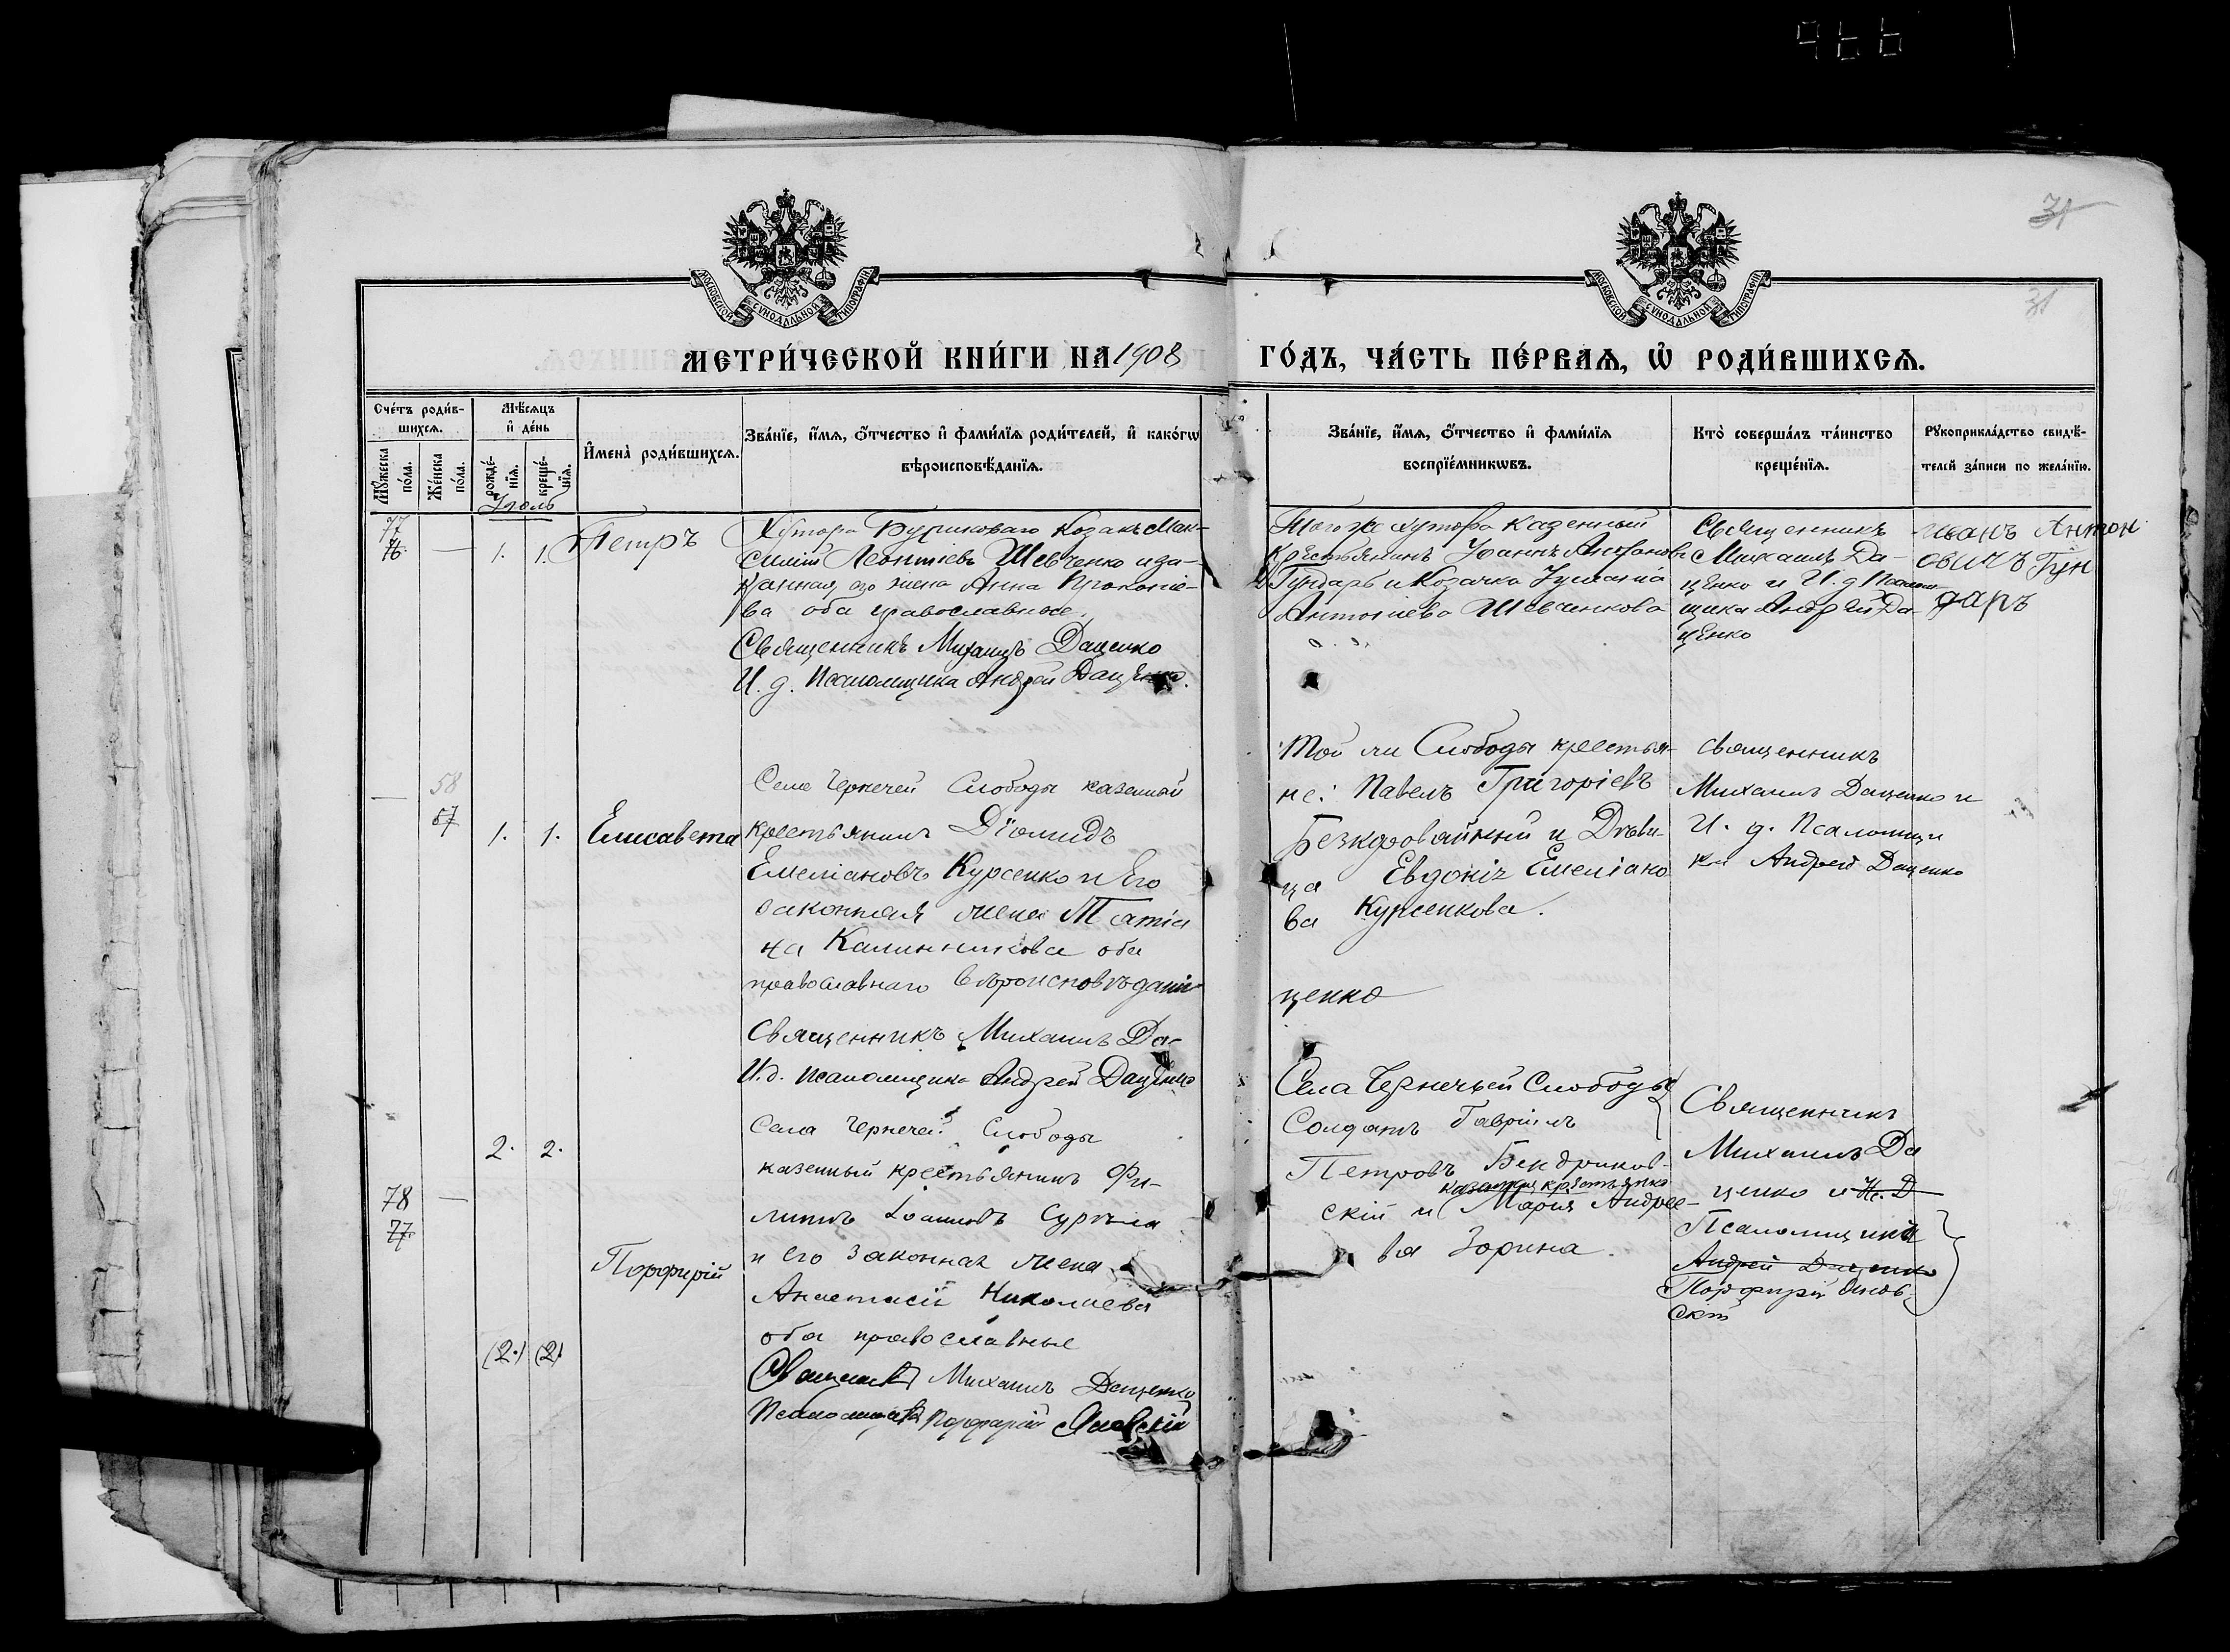 31
31
МОСКОВСКОЙ СѴНОДАЛЬНОЙ ТИПОГРАФІИ
МОСКОВСКОЙ СѴНОДАЛЬНОЙ ТИПОГРАФІИ
МЕТРИ́ЧЕСКОЙ КНИ́ГИ НА 1908 ГО́ДЪ, ЧА́СТЬ ПЕ́РВАѦ, Ѿ РОДИ́ВШИХСѦ.
Сче́тъ роди́в-
шихсѧ.
Мꙋ́жеска по́ла.
Же́нска по́ла.
Мѣ́сѧцъ
и҆ де́нь
рожде́-
нїѧ.
креще́-
нїѧ.
И҆мена̀ роди́вшихсѧ.
Зва́нїе, и҆́мѧ, ѻ҆́тчество и҆ фами́лїѧ роди́телей, и҆ како́гѡ
вѣроисповѣ́данїѧ.
Зва́нїе, и҆́мѧ, ѻ҆́тчество и҆ фами́лїѧ
воспрїе́мникѡвъ.
Кто̀ соверша́лъ та́инство
креще́нїѧ.
Рꙋкоприкла́дство свидѣ́-
телей за́писи по жела́нїю.
Іюль
77
76
—
1.
1.
Петръ
Хутора Козакъ Мак-
симъ Леонтіевъ Шевченко и за-
конная его жена Анна Прокопіе-
ва оба православные.
Священникъ Михаилъ Даценко
И. д. Псаломщика Андрей Даценко.
Того же хутора казенный
Крестьянинъ Іоаннъ Антоновъ
Гундарь и Козачка
Антоніева Шевченкова
Священникъ
Михаилъ Да-
ценко и И. д. Псалом-
щика Андрей Да-
ценко
иванъ Антон
овичъ Гун
даръ
—
58
57
1.
1.
Елисавета
Села Чернечей Слободы казенный
крестьянинъ Діомидъ
Емеліановъ Курсенко и Его
законная жена Татіа
на Калинникова оба
православнаго вѣроисповѣданія
Священникъ Михаилъ Да-
ценко
И.д. псаломщика Андрей Даценко
Той же Слободы крестья-
не: Павелъ Григоріевъ
и Дѣви-
ца Евдокія Емеліано
ва Курсенкова.
священникъ
Михаилъ Даценко и
И. д. Псаломщи
ка Андрей Даценко
78
77
—
2.
2.
(2.)
(2)
Порфирій
Села Чернечей Слободы
казенный крестьянинъ Фи-
липпъ Іоанновъ
и его законная жена
Анастасія Николаева
оба православные
Священникъ Михаилъ Даценко
Псаломщикъ Порфирій
Села Чернечьей Слободы
Солдатъ Гавріилъ
Петровъ Бендриков-
казенная крестьянка
скій и Марія Андрее-
ва Зорина.
Священникъ
Михаилъ Да
ценко и И. Д
Псаломщикъ
Андрей Даценко
Порфирій
скій